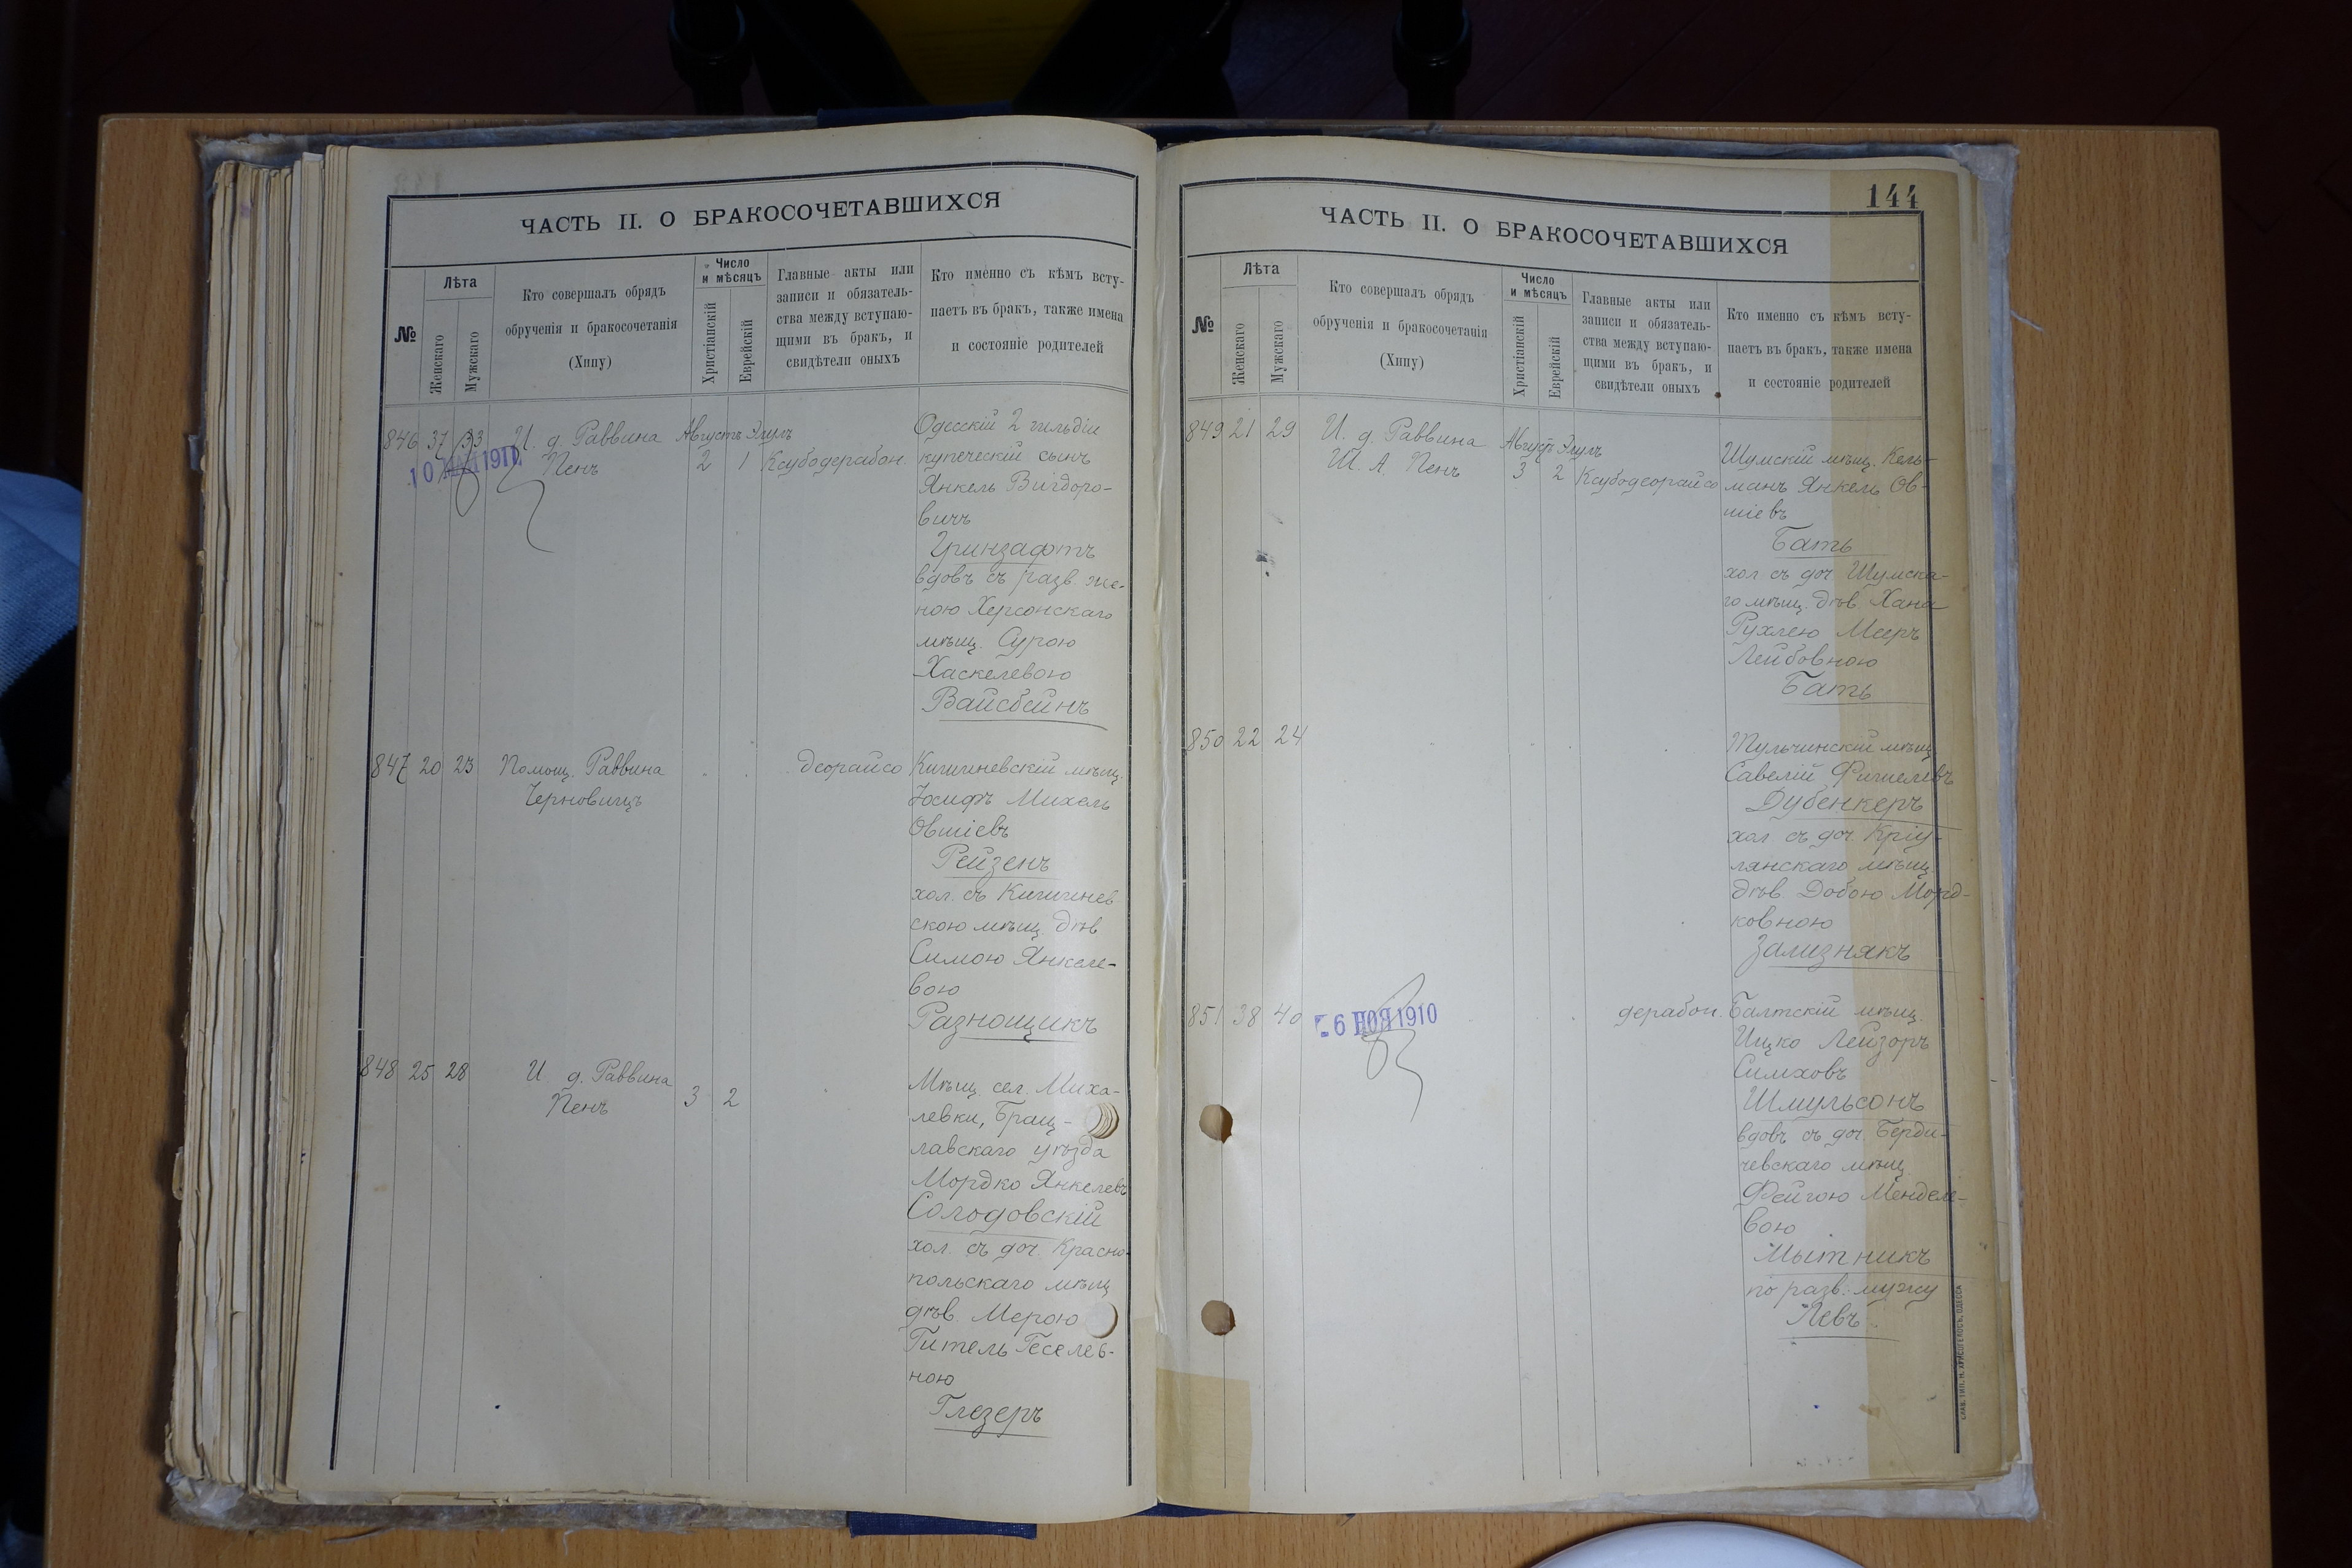 ЧАСТЬ II. О БРАКОСОЧЕТАВШИХСЯ
№
Лѣта
Женскаго
Мужскаго
Кто совершалъ обрядъ
обрученія и бракосочетанія
(Хипу)
Число
и мѣсяцъ
Христіанскій
Еврейскій
Главные акты или
записи и обязатель-
ства между вступаю-
щими въ бракъ, и
свидѣтели оныхъ
Кто именно съ кѣмъ всту-
паетъ въ бракъ, также имена
и состояніе родителей
846 37 33 И. д. Раввина Августъ Элулъ
Пенъ 2 1 Ксубодерабон.
10 МАЯ 1911
Одесскій 2 гильдіи
купеческій сынъ
Янкель Вигдоро-
вичъ
Гринзафтъ
вдовъ съ разв. же-
ною Херсонскаго
мѣщ. Сурою
Хаскелевою
Вайсбейнъ
847 20 23 Помощ. Раввина . . . деорайсо
Черновицъ
Кишиневскій мѣщ.
Іосифъ Михель
Овшіевъ
Рейзенъ
хол. съ Кишинев
скою мѣщ. дѣв
Симою Янкеле-
вою
Разнощикъ
848 25 28 И. д. Раввина
Пенъ 3 2
Мѣщ. сел. Миха-
левки, Брац-
лавскаго уѣзда
Мордко Янкелевъ
Солодовскій
хол. съ доч. Красно-
польскаго мѣщ
дѣв. Мерою
Гитель Геселев-
ною
Глезеръ
144
ЧАСТЬ II. О БРАКОСОЧЕТАВШИХСЯ
№
Лѣта
Женскаго
Мужскаго
Кто совершалъ обрядъ
обрученія и бракосочетанія
(Хипу)
Число
и мѣсяцъ
Христіанскій
Еврейскій
Главные акты или
записи и обязатель-
ства между вступаю-
щими въ бракъ, и
свидѣтели оныхъ
Кто именно съ кѣмъ всту-
паетъ въ бракъ, также имена
и состояніе родителей
849 21 29 И. д. Раввина Августъ Элулъ
Ш. А. Пенъ 3 2 Ксубодеорайсо
Шумскій мѣщ. Кель-
манъ Янкель Ов-
шіевъ
Бать
хол съ доч. Шумска-
го мѣщ. дѣв. Хана
Рухлею Мееръ
Лейбовною
Бать
850 22 24
Тульчинскій мѣщ
Савелій Фишелевъ
Дубенкеръ
хол. съ доч. Кріу-
лянскаго мѣщ.
дѣв. Добою Морд-
ковною
Зализнякъ
851 38 40 дерабон.
6 НОЯ 1910
Балтскій мѣщ.
Ицко Лейзоръ
Симховъ
Шмульсонъ
вдовъ съ доч. Берди-
чевскаго мѣщ.
Фейгою Менделе-
вою
Мытникъ
по разв. мужу
Левъ
СЛАВ. ТИП. Н. ХРИСОГЕЛОСЪ, ОДЕССА